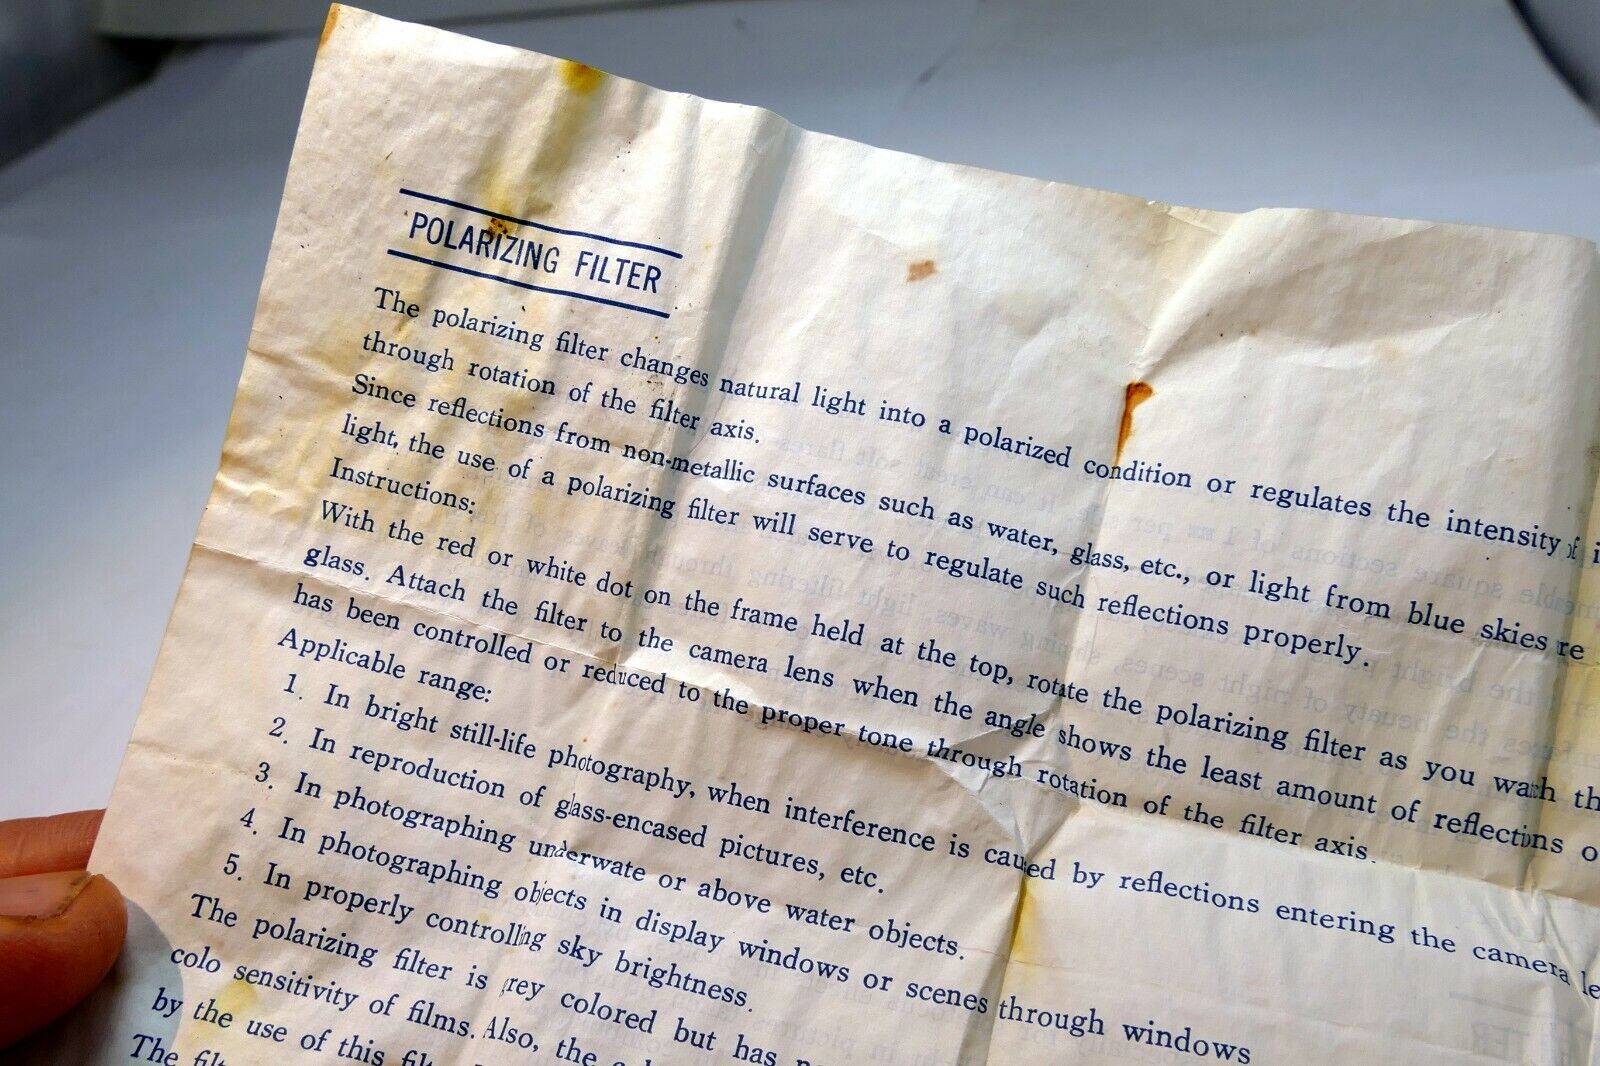 POLARIZING FILTER
The polarizing filter changes natural light into a polarized condition or regulates the intensity of
through rotation of the filter axis.
Since reflections from non-metallic surfaces such as water, glass, etc., or light from blue skies re
light, the use of a polarizing filter will serve to regulate such reflections properly.
Instructions:
With the red or white dot on the frame held at the top, rotate the polarizing filter as you watch th
glass. Attach the filter to the camera lens when the angle shows the least amount of reflections o
has been controlled or reduced to the proper tone through rotation of the filter axis.
Applicable range:
1. In bright still-life photography, when interference is caused by reflections entering the camera le
2. In reproduction of glass-encased pictures, etc.
3. In photographing underwate or above water objects.
4. In photographing objects in display windows or scenes through windows
5. In properly controlling sky brightness.
The polarizing filter is grey colored but has n
colo sensitivity of films. Also, the
by the use of this
The